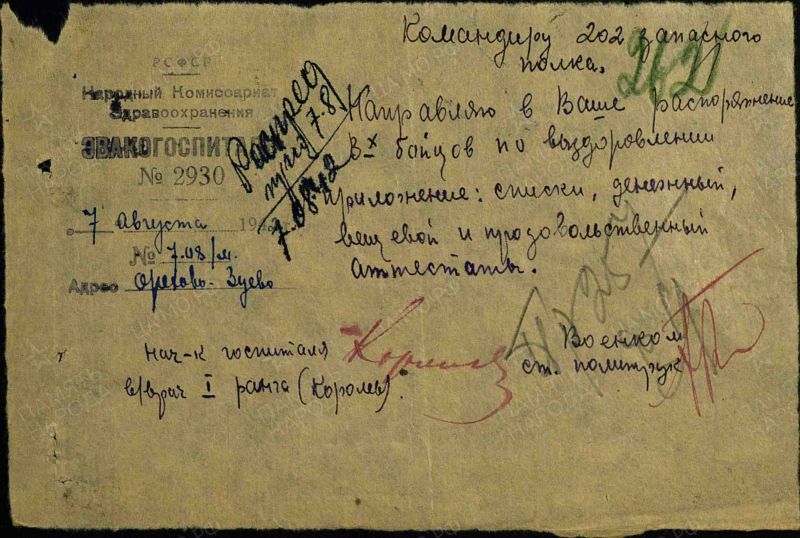 РСФСР
Народный Комиссариат
Здравоохранения
ЭВАКОГОСПИТАЛЬ
№ 2930
7 августа 194
№ 7.08/м.
Адрес Орехово-Зуево
Командиру 202 запасного
полка.
Направляю в Ваше распоряжение
3х бойцов по выздоровлении
приложение: списки, денежный,
вещевой и продовольственный
аттестаты.
Распред
7.8
7.08.42
Нач-к госпиталя
в/врач I ранга (Королев).
Военком
ст. политрук